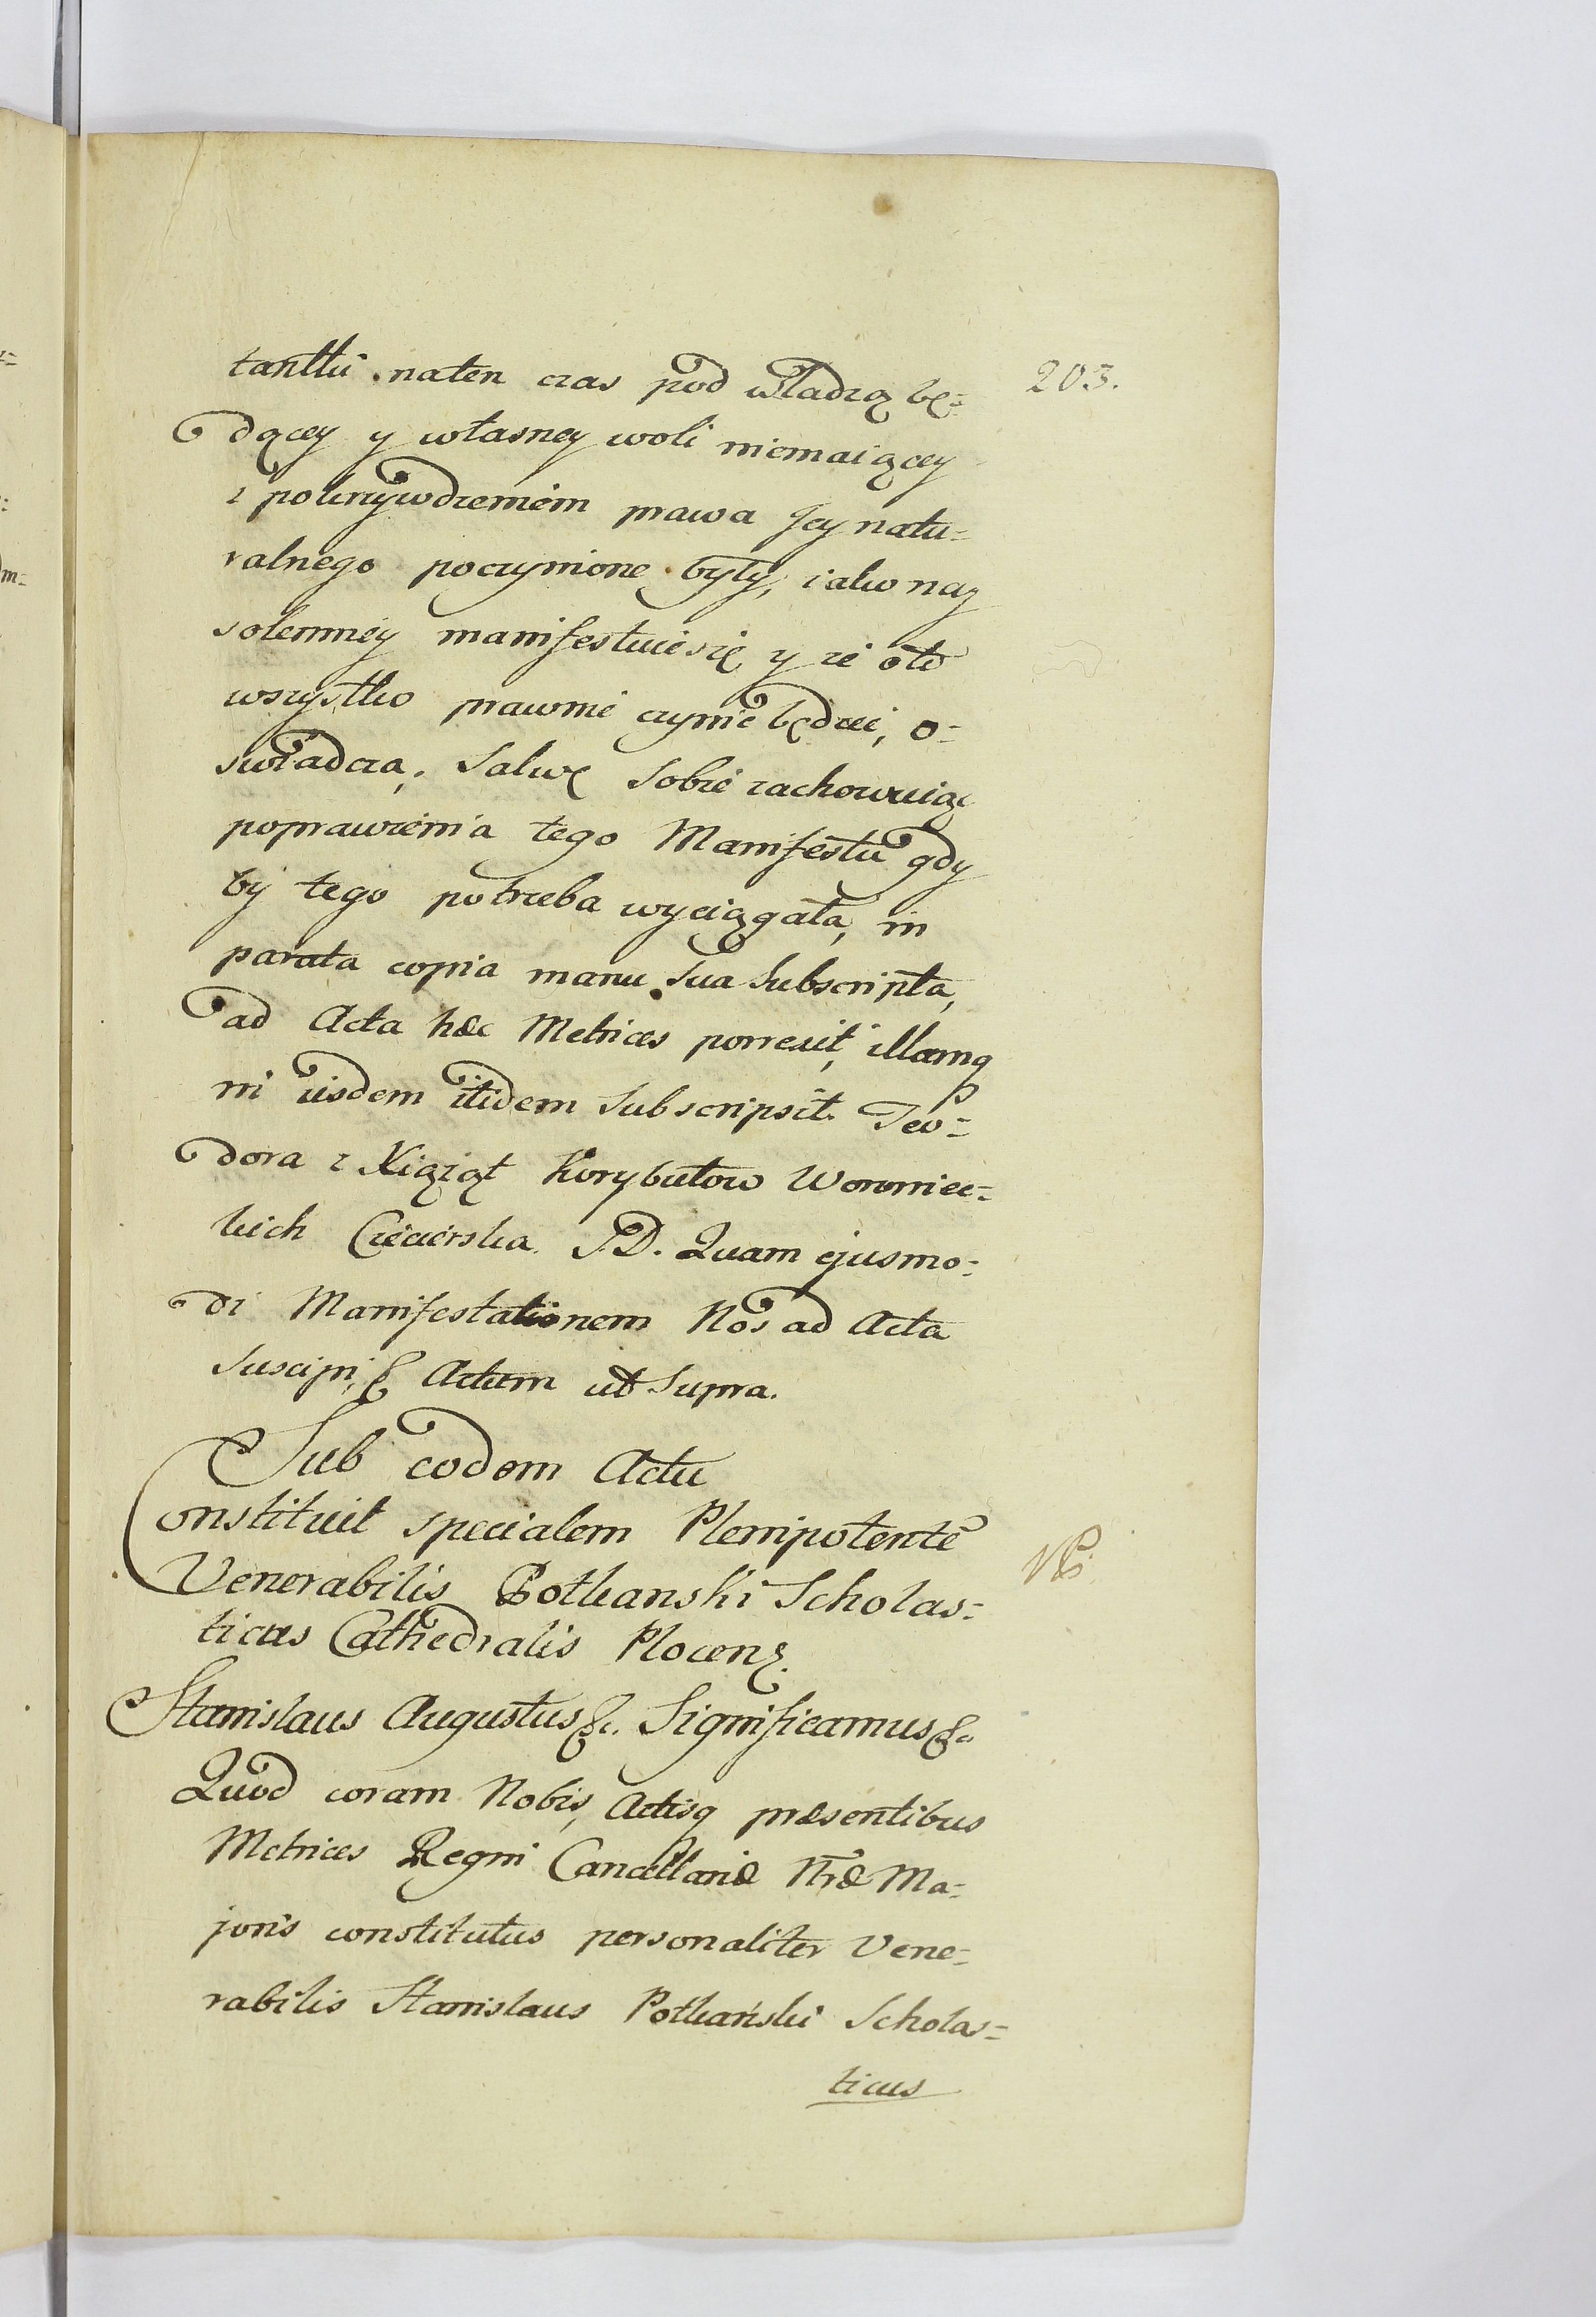 203.
tantki naten czas pod władzą bę=
dącey y własney woli niemaiącey
z pokrzywdzeniem prawa Jey natu=
ralnego poczynione były, iako nay
solenniey manifestuie się y ze o to
wszystko prawnie czynić będzie, o=
swiadcza, Salwę sobie zachowuiąc
poprawienia tego Manifestu gdy
by tego potrzeba wyciągała, in
parata copia manu sua subscripta,
ad Acta hæc Metrices porrexit, illamq
in iisdem itidem subscripsit. Teo=
dora z Xiążąt Korybutow Woroniec=
kich Ciecierska. Quam ejusmo=
di Manifestationem Nos ad Acta
suscipi, & Actum ut supra.
Sub eodem Actu
Constituit specialem Plenipotentē
Venerabilis Potkanski Scholas=
ticus Cathedralis Plocens.
Stanislaus Augustus &c. Significamus &c.
Quod coram Nobis, Actisq præsentibus
Metrices Regni Cancellariæ Nræ Ma=
joris constitutus personaliter Vene=
rabilis Stanislaus Potkański Scholas=
ticus